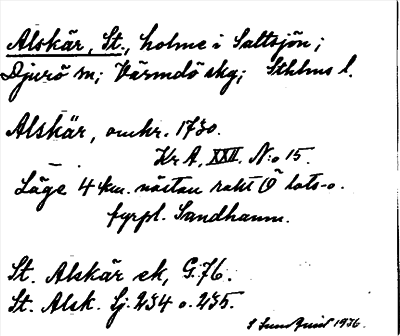 Alskär, St., holme i Saltsjön;
Djurö sn; Värmdö skg; Sthlms l.
Alskär, omkr. 1730.
Kr A, XXII. N:o 15.
Läge 4 km. nästan rakt Ö lots- o.
fyrpl. Sandhamn.
St. Alskär ek, G. 76.
St. Alsk. Lj. 234 o. 235.
1936.